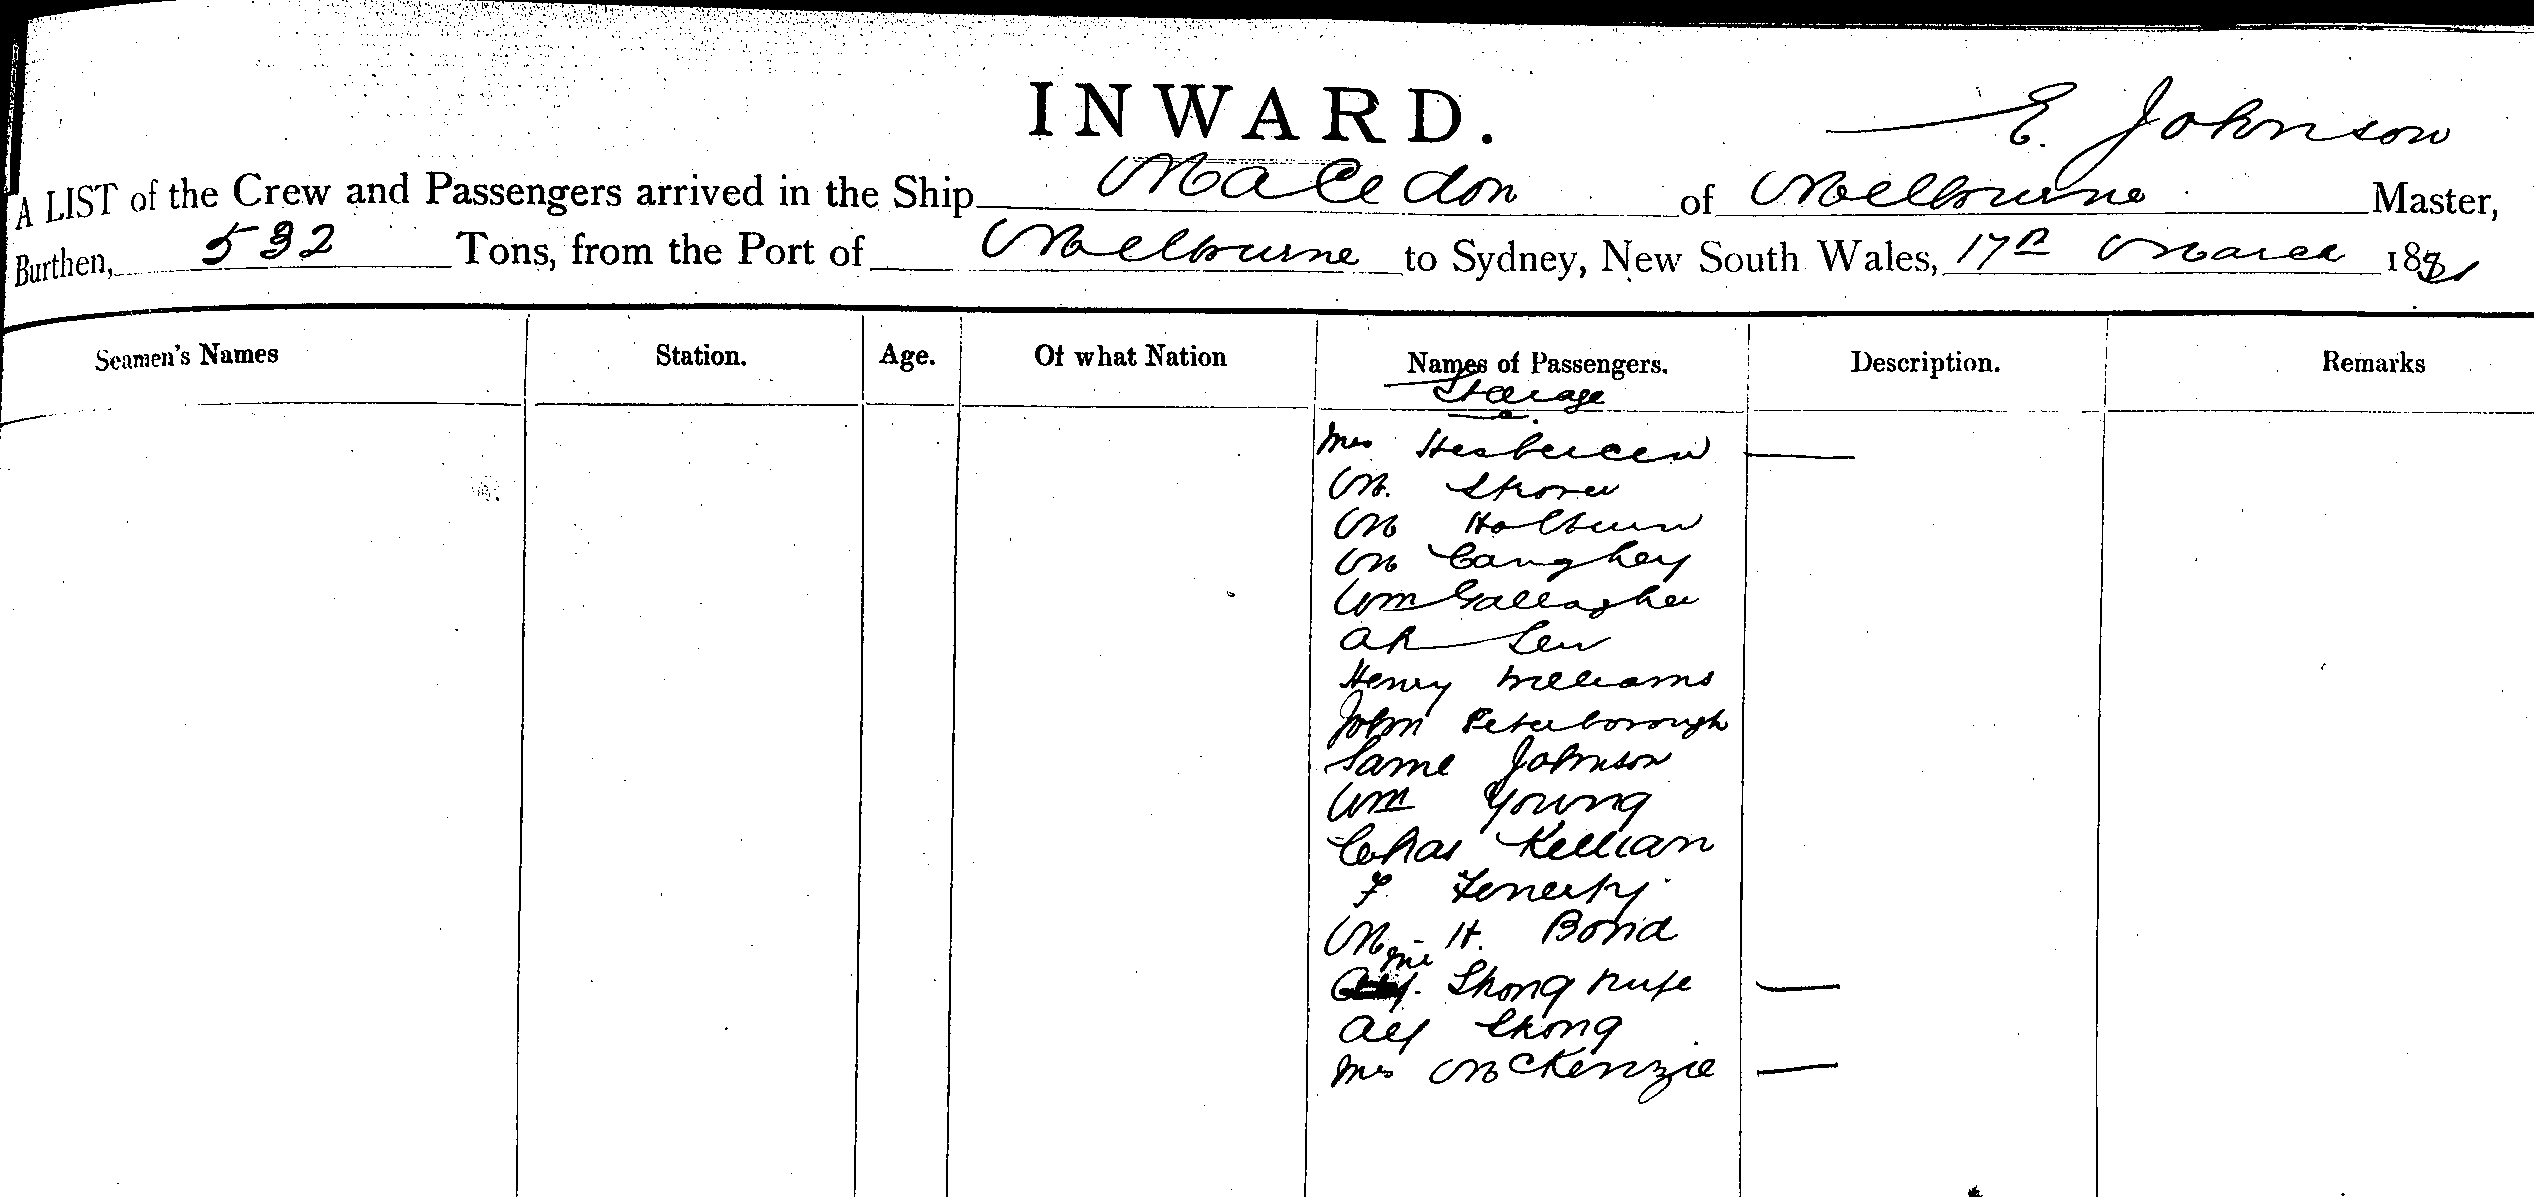 INWARD.
E. Johnson
A LIST of the Crew and Passengers arrived in the Ship Macedon of Melbourne Master,
Burthen, 532 Tons, from the Port of Melbourne to Sydney, New South Wales, 17th March 1881
Seamen's Names Station. Age. Of what Nation Names of Passengers. Description. Remarks
Steerage
Mrs
M.
M Holburn
M Caughey
Wm Gallagher
Ah Lew
Henry Williams
John Peterborough
Same Johnson
Wm Young
Chas Killian
F. Fenerty
M H. Bond
Shong
Alf Shong
Mrs McKenzie